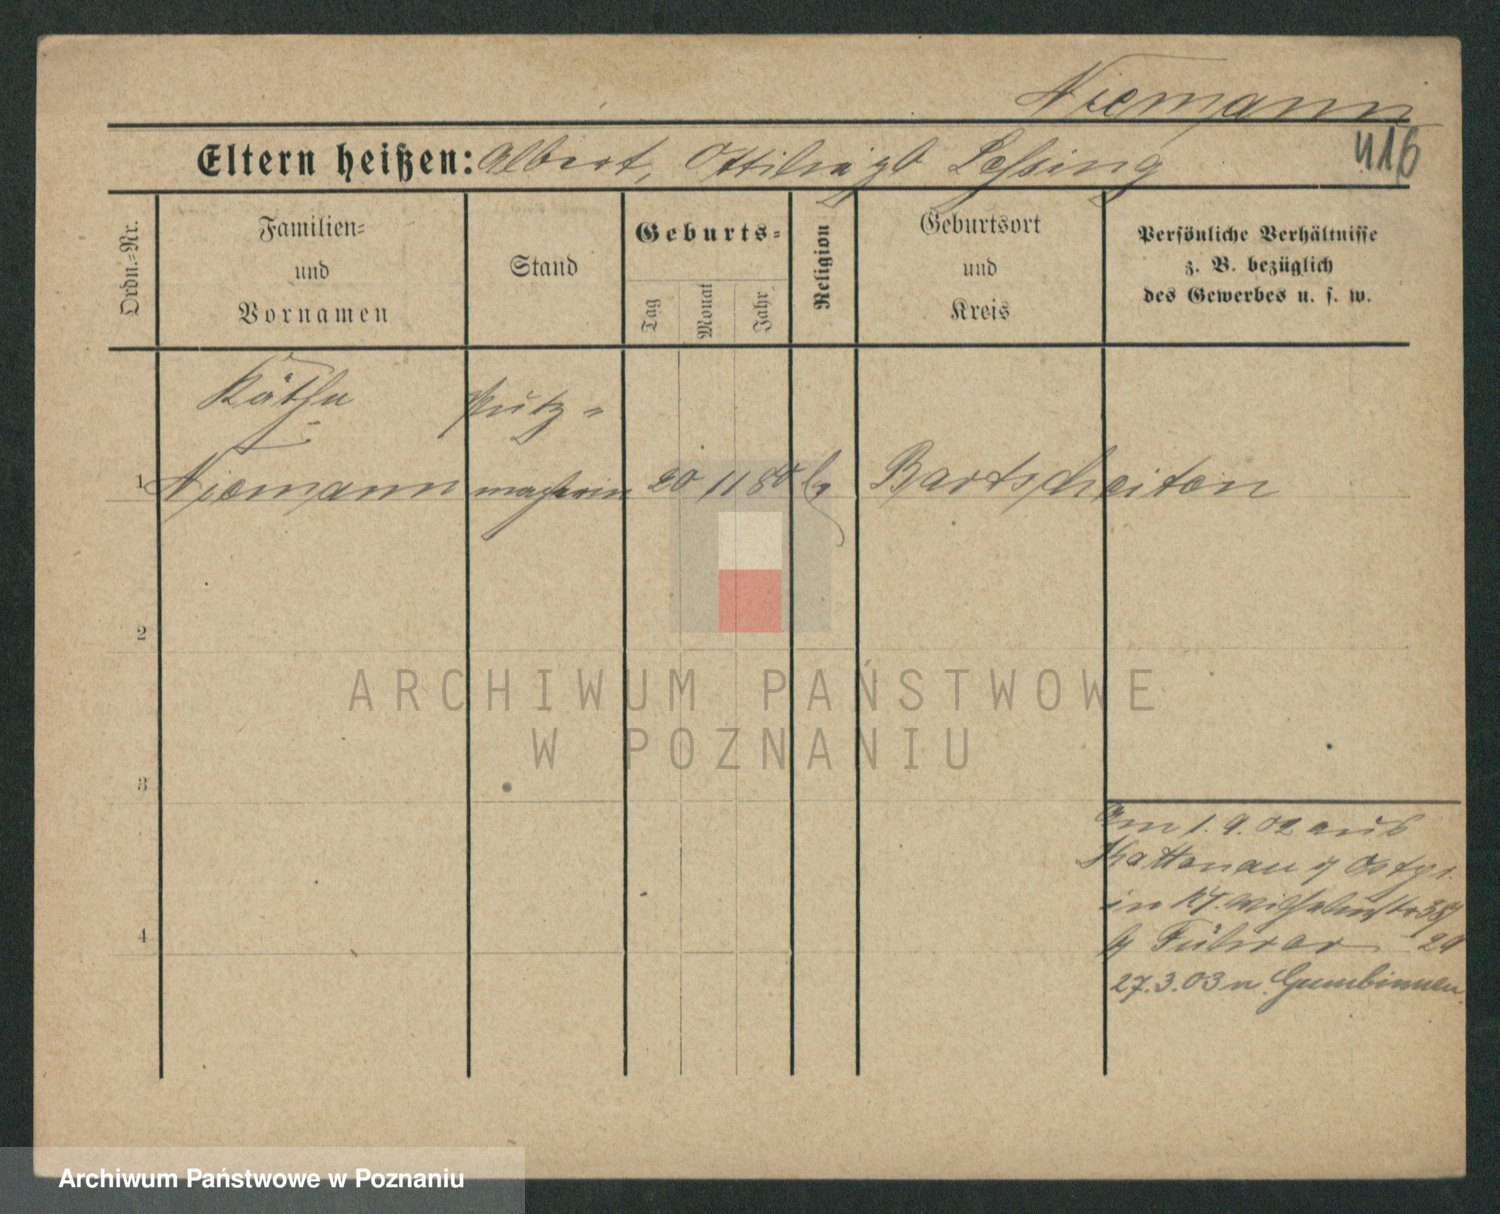 Niemann
416
Eltern heißen: Albert, Ottilie gb Lessing
Ordn.-Nr.
Familien-
und
Vornamen
Stand
Geburts-
Tag
Monat
Jahr
Religion
Geburtsort
und
Kreis
Persönliche Verhältnisse
z. B. bezüglich
des Gewerbes u. s. w.
Käthe Putz-
1 Niemann macherin 20 11 80 Bartscheiten
2
ARCHIWUM PAŃSTWOWE
W POZNANIU
3
Am 1.9.02 aus
Kattenau Ostpr.
in Wilhelmstr
Führer 29
27.3.03 n. Gumbinnen
4
Archiwum Państwowe w Poznaniu